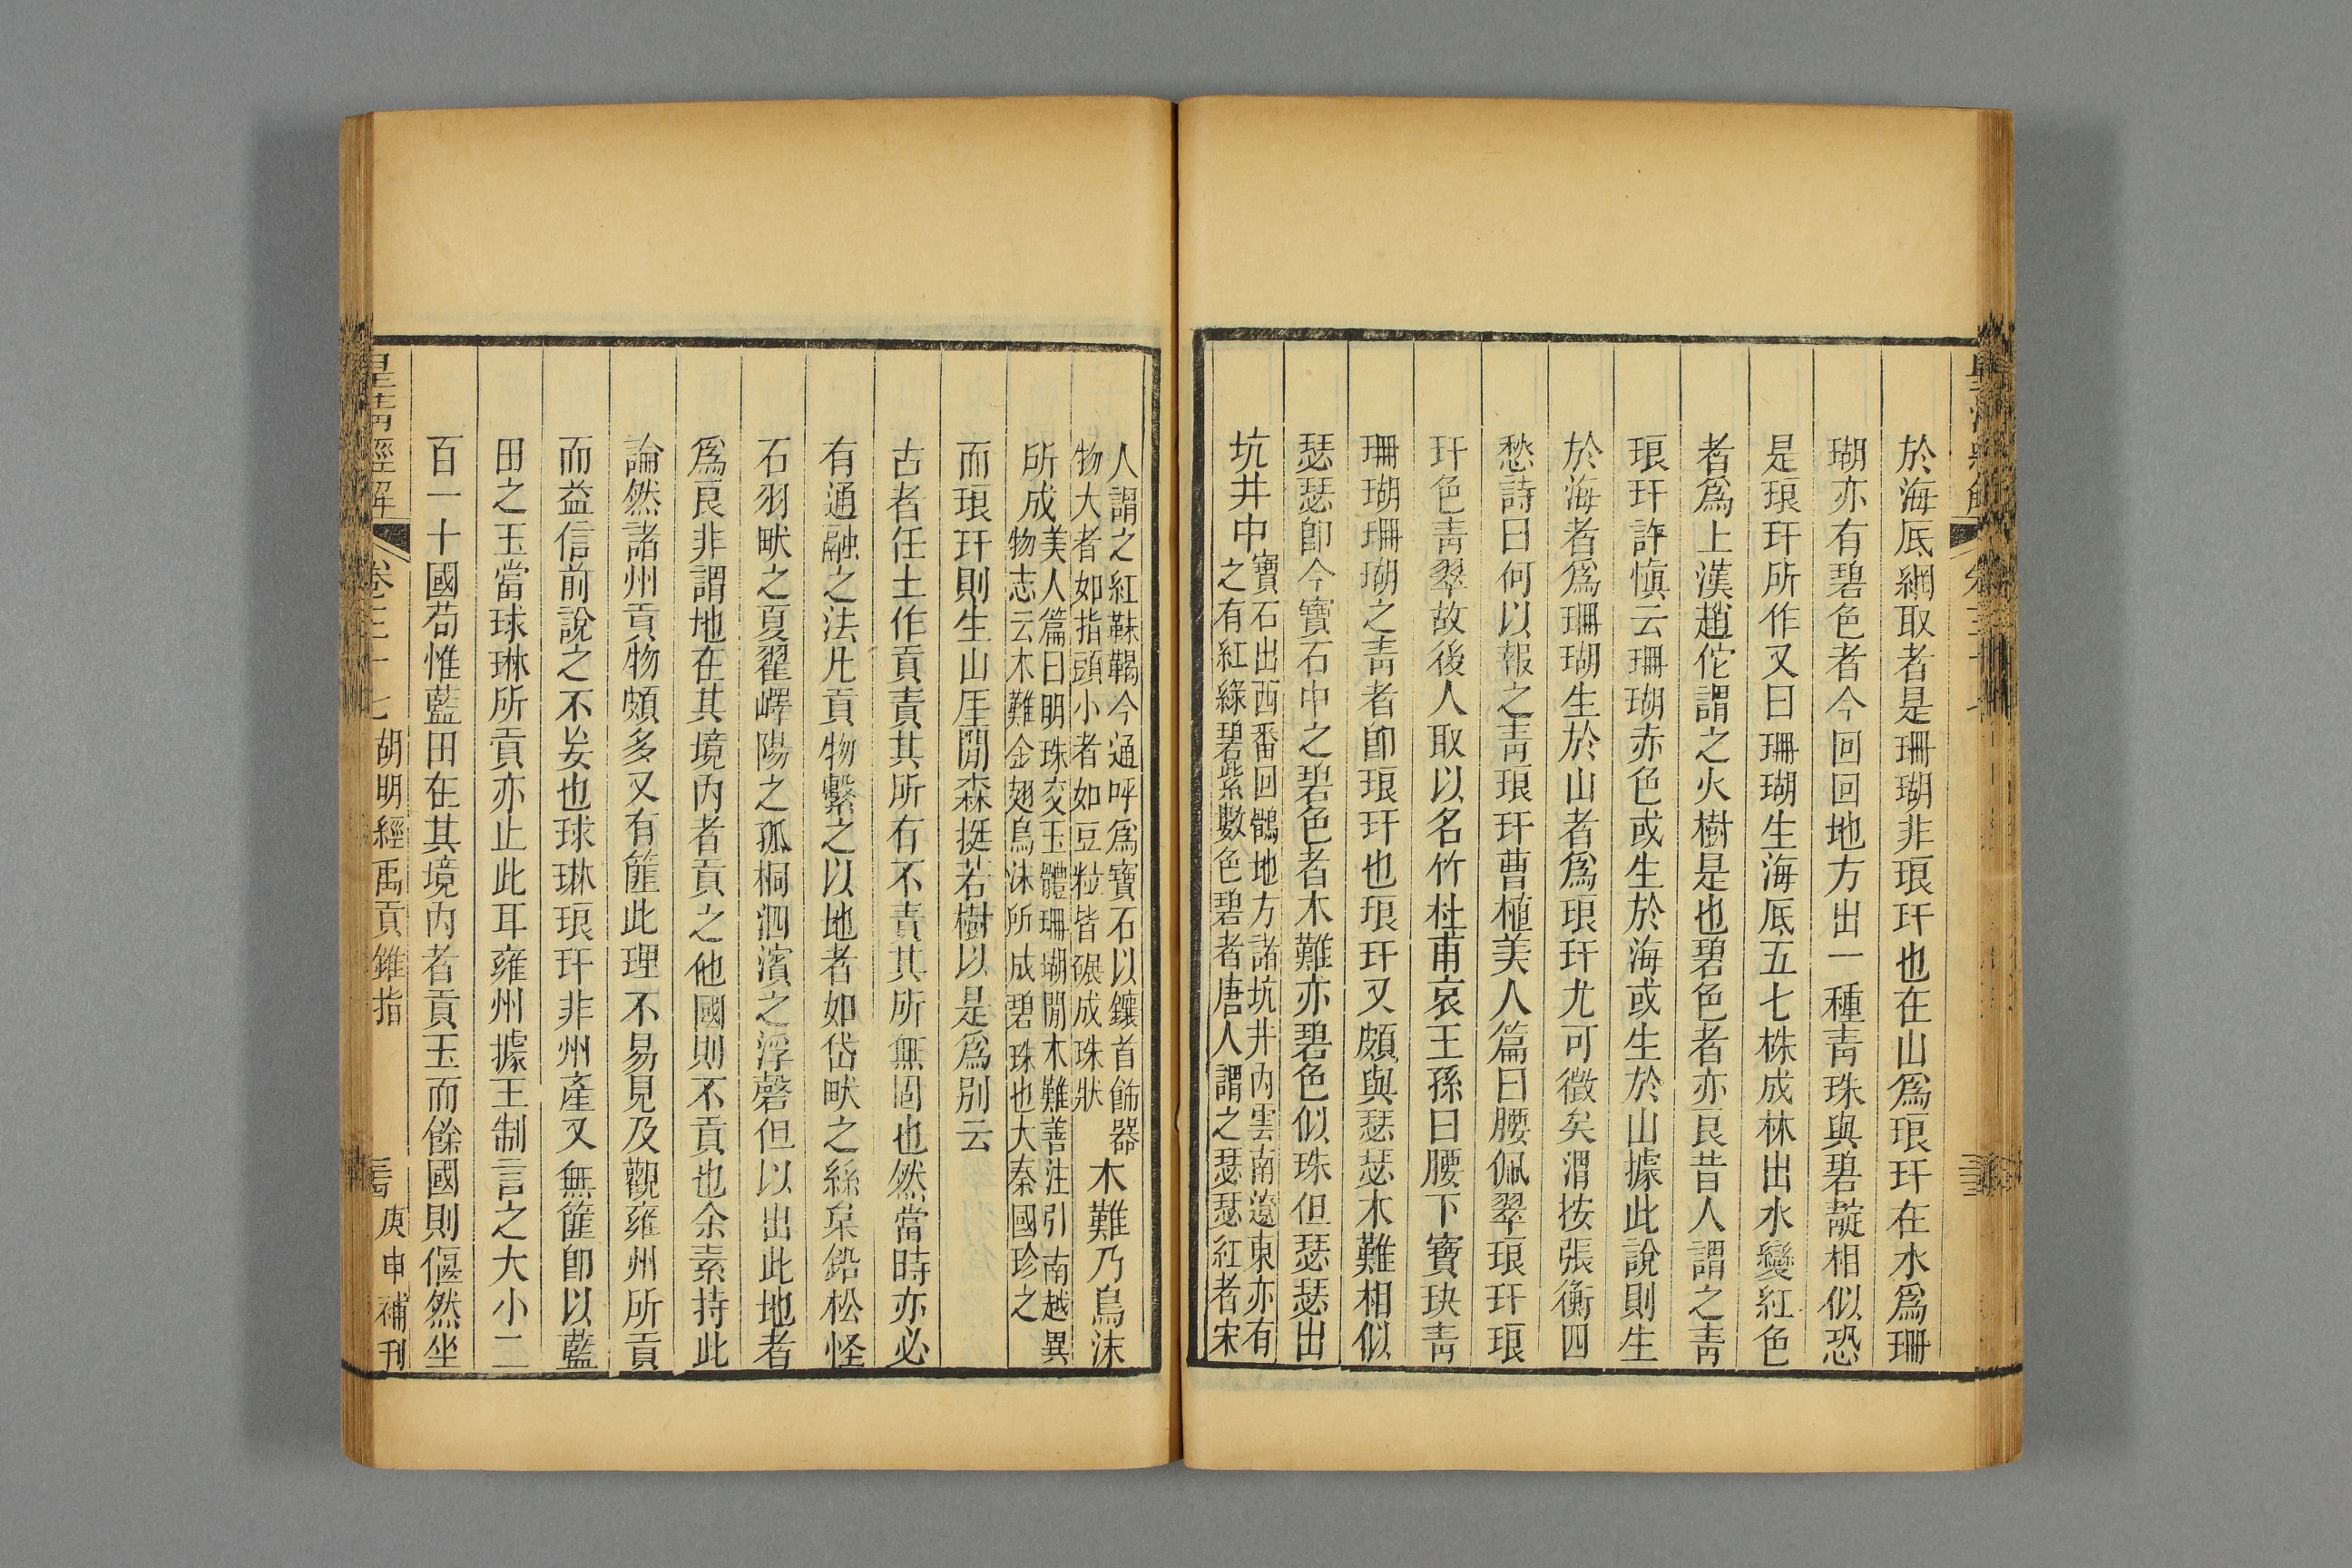 於海底網取者是珊瑚非琅玕也在山爲琅玕在水爲珊
瑚亦有碧色者今回回地方出一種靑珠與碧靛相似恐
是琅玕所作又曰珊瑚生海底五七株成林出水變紅色
者爲上漢趙佗謂之火樹是也碧色者亦良昔人謂之靑
琅玕許愼云珊瑚赤色或生於海或生於山據此說則生
於海者爲珊瑚生於山者爲琅玕尤可徵矣渭按張衡四
愁詩曰何以報之靑琅玕曹植美人篇曰腰佩翠琅玕琅
玕色靑翠故後人取以名竹杜甫哀王孫曰腰下寶玦靑
珊瑚珊瑚之靑者卽琅玕也琅玕又頗與瑟瑟木難相似
瑟瑟卽今寶石中之碧色者木難亦碧色似珠但瑟瑟出
坑井中
寶石出西番回鶻地方諸坑井內雲南遼東亦有
之有紅綠碧紫數色碧者唐人謂之瑟瑟紅者宋
人謂之紅靺鞨今通呼爲寶石以鑲首飾器
物大者如指頭小者如豆粒皆碾成珠狀
木難乃鳥沫
所成
美人篇曰明珠交玉體珊瑚閒木難善注引南越異
物志云木難金翅鳥沫所成碧珠也大秦國珍之
而琅玕則生山厓閒森挺若樹以是爲別云
古者任土作貢責其所有不責其所無固也然當時亦必
有通融之法凡貢物繫之以地者如岱畎之絲枲鉛松怪
石羽畎之夏翟嶧陽之孤桐泗濱之浮磬但以出此地者
爲良非謂地在其境內者貢之他國則不貢也余素持此
論然諸州貢物頗多又有篚此理不易見及觀雍州所貢
而益信前說之不妄也球琳琅玕非州產又無篚卽以藍
田之玉當球琳所貢亦止此耳雍州據王制言之大小二
百一十國苟惟藍田在其境內者貢玉而餘國則偃然坐
皇淸經解 卷三十七 胡明經禹貢錐指 庚申補刊